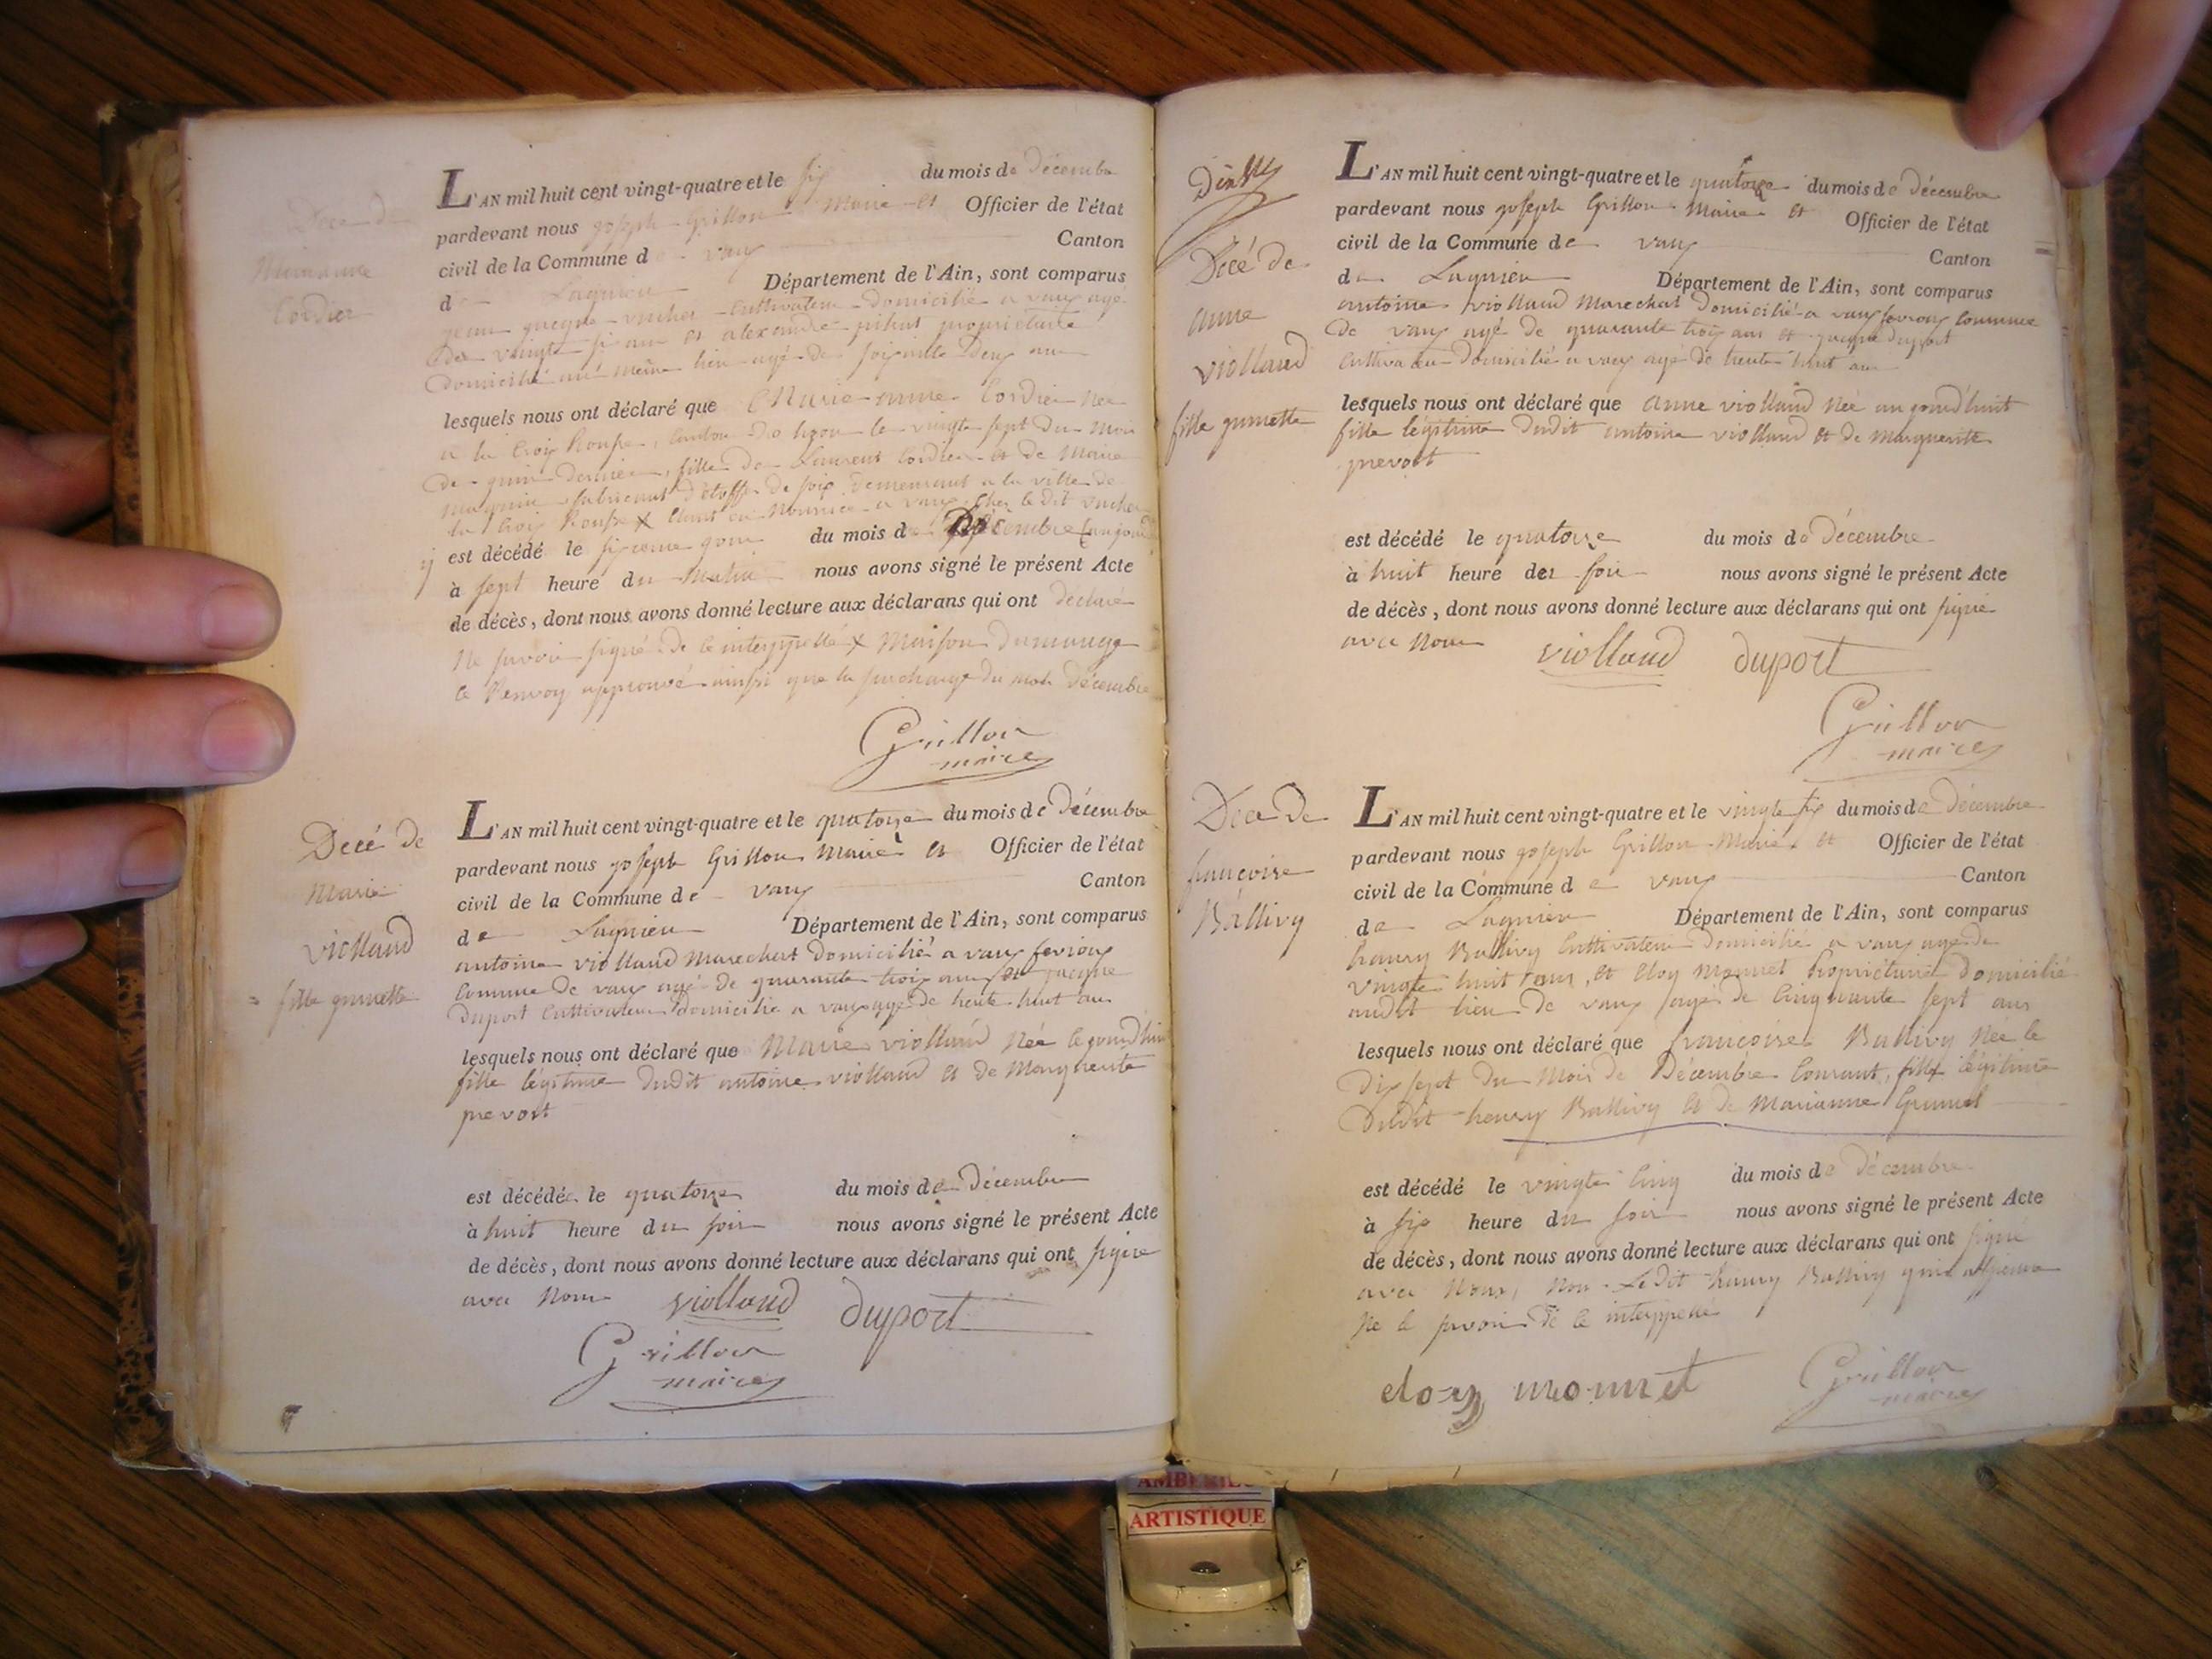 Décé de
Marianne
Cordier
L'AN mil huit cent vingt-quatre et le six du mois de Décembre
pardevant nous joseph Grillon Maire et Officier de l'état
civil de la Commune de vaux Canton
de Lagnieu Département de l'Ain, sont comparus
jean jacque vucher Cultivateur Domicilié a vaux agé
de vingte six ans et alexandre pihat propriétaire
Domicilié au même lieu agé de soixante Deux ans
lesquels nous ont déclaré que Marie anne Cordier Née
a la Croix Rousse, Canton de lion le vingte sept Du mois
de juin dernier, fille de Laurent Cordier et de Marie
magnin fabricant d'étoffe de soie Demeurant a la ville de
la Croix Rousse X étant en Nourrice a vaux Chez le Dit vucher
y est décédé le sixieme jour du mois de Décembre
à sept heure du Matin nous avons signé le présent Acte
de décès, dont nous avons donné lecture aux déclarans qui ont déclaré
Ne savoir signé de ce interppellé X Maison
le Renvoy approuvé ainssi que la surcharge du mot Décembre
Grillon
maire
Décé de
Marie
viollaud
fille jumelle
L'AN mil huit cent vingt-quatre et le quatorze du mois de Décembre
pardevant nous joseph Grillon Maire et Officier de l'état
civil de la Commune de vaux Canton
de Lagnieu Département de l'Ain, sont comparus
antoine viollaud Marechal Domicilié a vaux fevroux
Commune de vaux agé de quarante trois ans et jacque
Duport Cultivateur Domicilié a vaux agé de trente huit ans
lesquels nous ont déclaré que Marie viollaud Née
fille légitime dudit antoine viollaud et de Marguerite
prevost
est décédée le quatorze du mois de Décembre
à huit heure du soir nous avons signé le présent Acte
de décès, dont nous avons donné lecture aux déclarans qui ont signé
avec Nous viollaud duport
Grillon
maire
Décé de
anne
viollaud
fille jumelle
L'AN mil huit cent vingt-quatre et le quatorze du mois de Décembre
pardevant nous joseph Grillon Maire et Officier de l'état
civil de la Commune de vaux Canton
de Lagnieu Département de l'Ain, sont comparus
antoine viollaud Marechal Domicilié a vaux fevroux Commune
de vaux agé de quarante trois ans et jacque Duport
Cultivateur Domicilié a vaux agé de trente huit ans
lesquels nous ont déclaré que anne viollaud Née aujourd'huit
fille légitime Dudit antoine viollaud et de Marguerite
prevost
est décédé le quatorze du mois de Décembre
à huit heure du soir nous avons signé le présent Acte
de décès, dont nous avons donné lecture aux déclarans qui ont signé
avec Nous viollaud duport
Grillon
maire
Décé de
françoise
Ballivy
L'AN mil huit cent vingt-quatre et le vingte six du mois de Décembre
pardevant nous joseph Grillon Maire et Officier de l'état
civil de la Commune de vaux Canton
de Lagnieu Département de l'Ain, sont comparus
henry Ballivy Cultivateur Domicilié a vaux agé de
vingte huit ans, et eloy Monnet Propriétaire Domicilié
audit lieu de vaux agé de Cinquante sept ans
lesquels nous ont déclaré que françoise Ballivy Née le
Dix sept Du Mois de Décembre Courant, fille légitime
Dudit henry Ballivy et de Marianne Grumel
est décédé le vingte Cinq du mois de Décembre
à six heure du soir nous avons signé le présent Acte
de décès, dont nous avons donné lecture aux déclarans qui ont signé
avec Nous, Non Ledit henry Ballivy
Ne le savoir de ce interppellé
eloy monnet
Grillon
maire
ARTISTIQUE